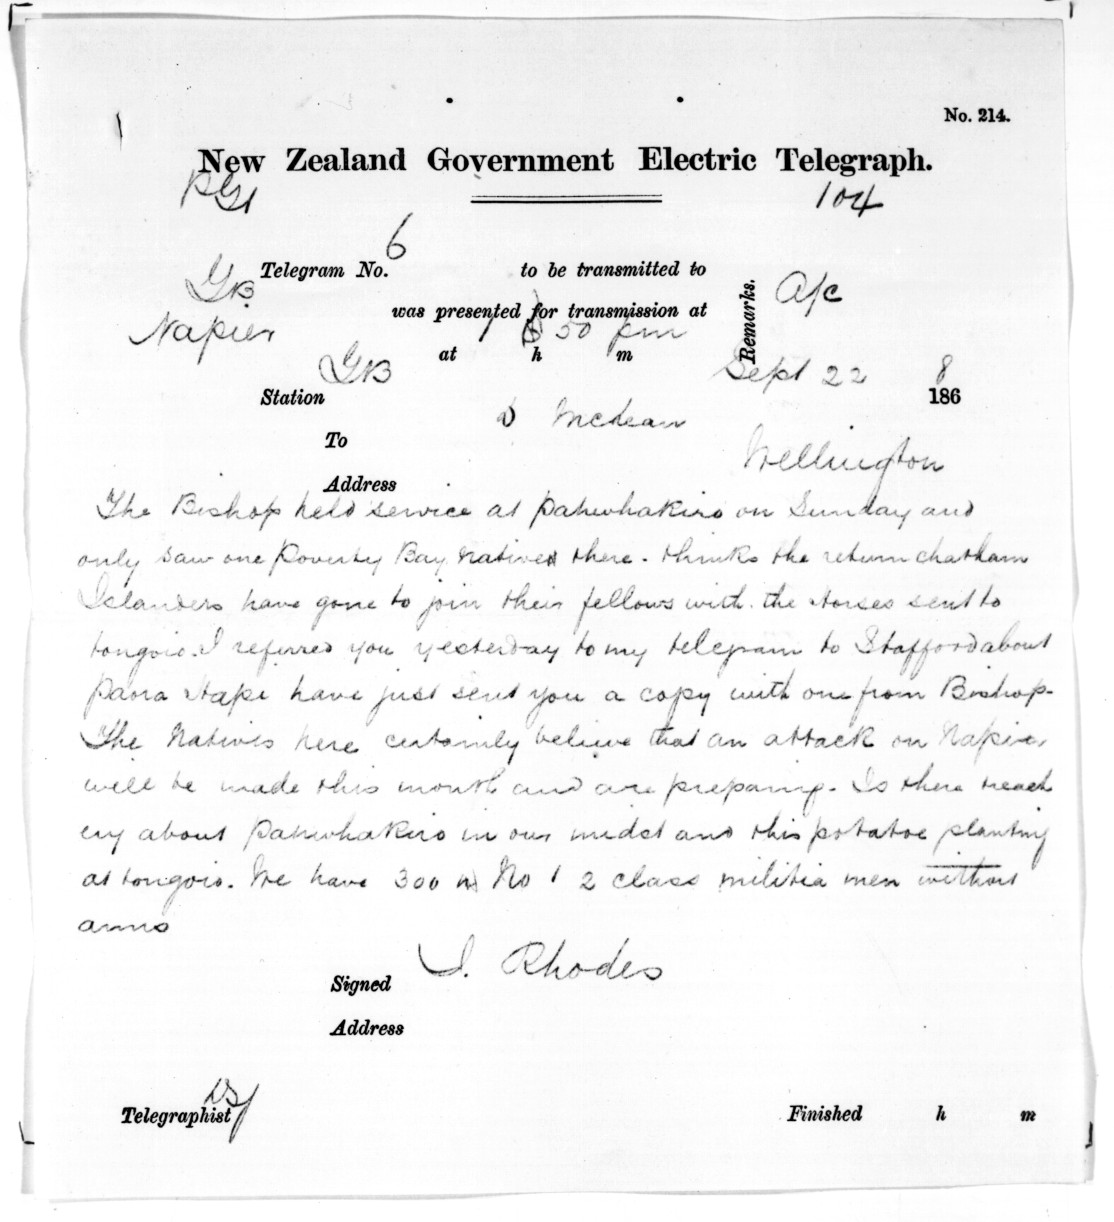 No. 214.
New Zealand Government Electric Telegraph.
104
6
Telegram No. to be transmitted to
GB
A/c
Remarks.
was presented for transmission at
Napier
1 50 pm
at h m
GB
Sept 22 8
Station 186
D McLean
To
Wellington
Address
The Bishop held service at pahwhakiro on Sunday and
only saw one Poverty Bay Native there. thinks the return chatham
Islanders have gone to join their fellows with the Horses sent to
tongoio. I referred you yesterday to my telegram to Stafford about
paora Hape have just sent you a copy with one from Bishop.
The Natives here certainly believe that an attack on Napier
will be made this month and are preparing. Is there treach
ery about Pahwhakiro in our midst and this potatoe planting
at tongoio. We have 300 No 1 2 class militia men without
arms
J. Rhodes
Signed
Address
Telegraphist Finished h m